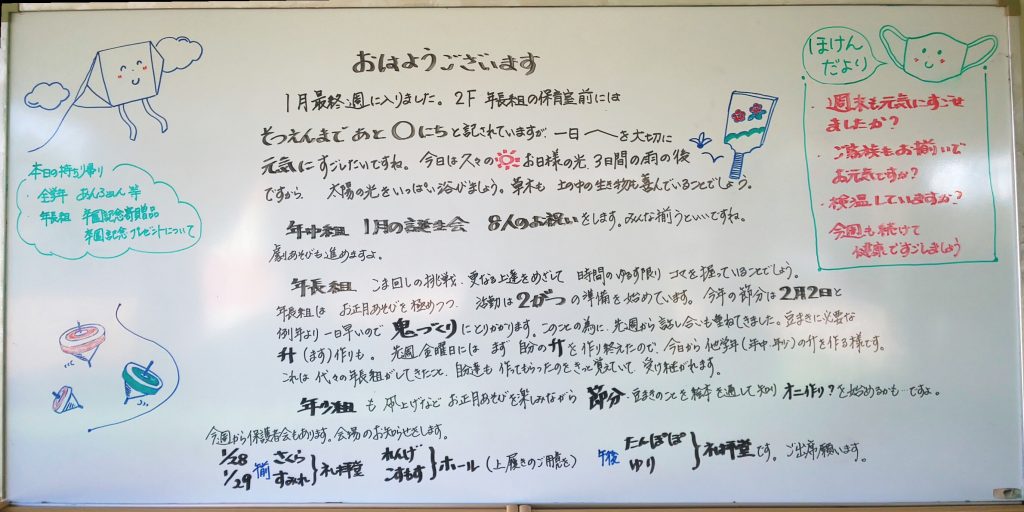 おはようございます
1月最終週に入りました。2F 年長組の保育室前には
そつえんまで あと 〇にち と記されていますが 一日一一を大切に
元気にすごしたいですね。今日は久々の お日様の光、3日間の雨の後
ですから、太陽の光をいっぱい浴びましょう。草木も 土の中の生き物も喜んでいることでしょう。
年中組 1月の誕生会 8人のお祝いをします。みんな揃うといいですね。
劇あそびも進めますよ。
年長組 こま回しの挑戦、更なる上達をめざして 時間のゆるす限り コマを握っていることでしょう。
年長組は お正月あそびを極めつつ 活動は2がつの準備を始めています。今年の節分は2月2日と
例年より一日早いので 鬼づくりにとりかかります。このことの為に、先週から話し合いも重ねてきました。豆まきに必要な
升(ます)作りも。先週金曜日には まず 自分の升を作り終えたので、今日から他学年(年中、年少)の升を作る様です。
これは 代々の年長組がしてきたこと、自分達も 作ってもらったのをきっと覚えていて 受け継がれます。
年少組 も 凧上げなど お正月あそびを楽しみながら 節分、豆まきのことを絵本を通して知り オニ作り?を始めるかも…ですよ。
今週から保護者会もあります。会場のお知らせをします。
1/28 午前 さくら 礼拝堂 れんげ ホール(上履きのご用意を) 午後 たんぽぽ 礼拝堂です。ご出席願います。
1/29 すみれ こすもす ゆり
本日の持ち帰り
・全学年 あんふぁん 等
・年長組 卒園記念寄贈品
卒園記念プレゼントについて
ほけん
だより
・週末も元気にすごせ
ましたか?
・ご家族もお揃いで
お元気ですか?
・検温していますか?
今週も続けて
健康ですごしましょう